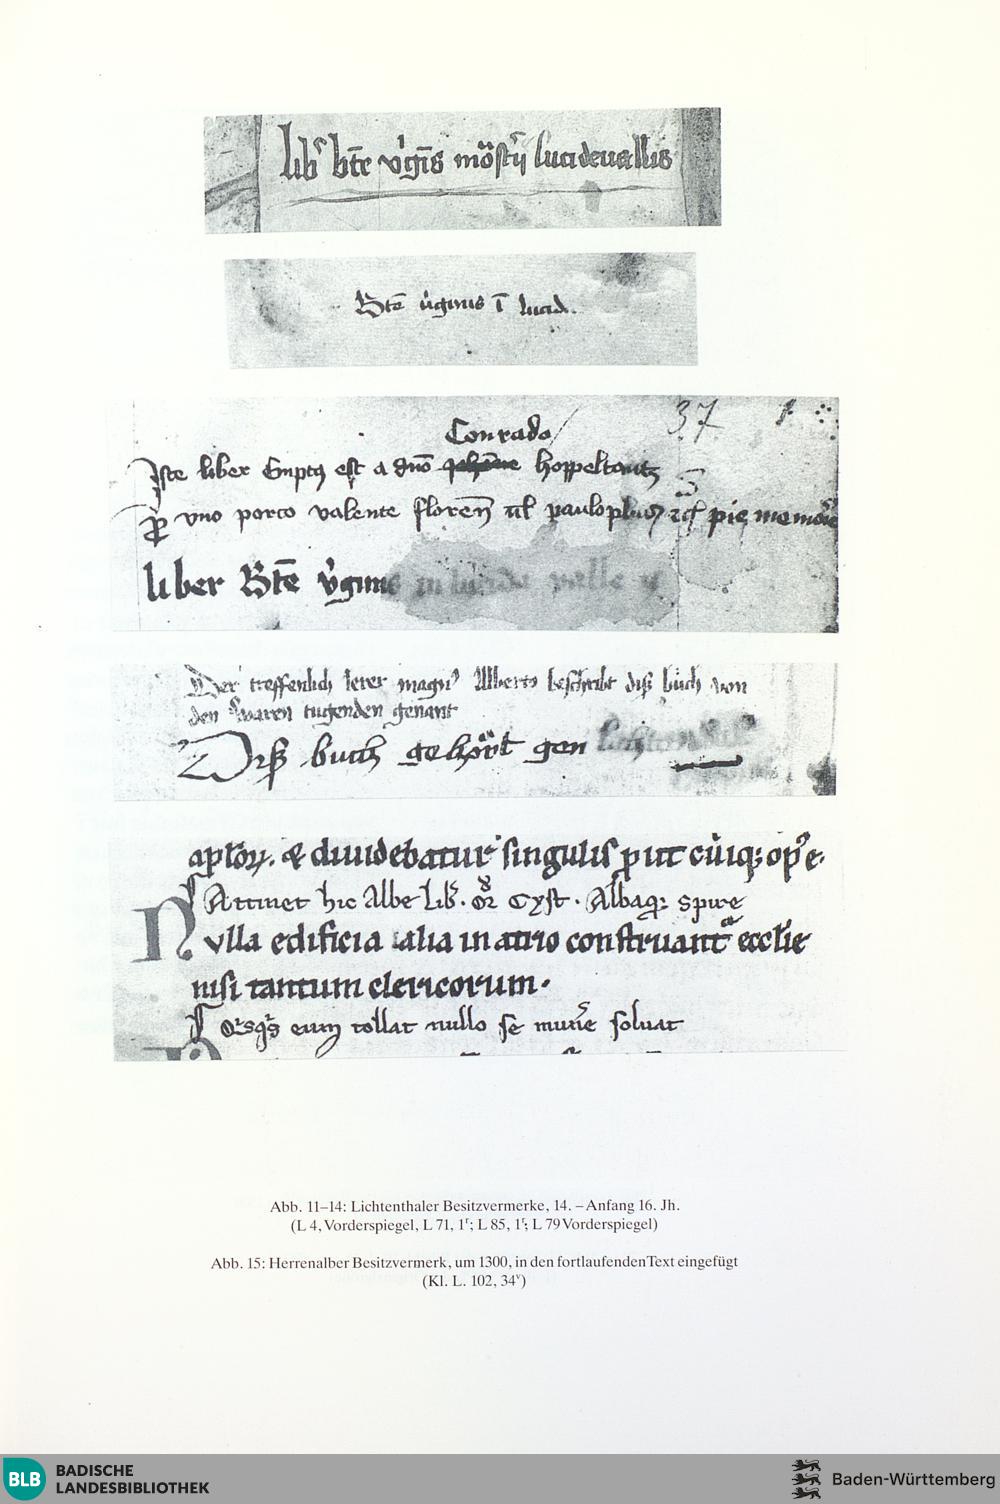 lib' bte v'gis mo'strij lucideuallis
Bte v'ginis i lucid.
37
Conrado
Iste liber Emptus est a dno hoppeltantz
P vno porco valente floren vl pie memorie
liber Bte v'ginis in lucida valle
Der treffenlich lerer magn' Alberto beschribt diß bůch von
den waren tugenden genant
Diß buch gehört gen
aploꝝ. & diuidebatur singulis put cuiq; op' e.
Attinet hic Albe Lib'. Or Cyst. Albaq; spire
Nvlla edificia alia in atrio construant' ecclie
nisi tantum clericorum.
eum tollat nullo se mune soluat
Abb. 11–14: Lichtenthaler Besitzvermerke, 14. – Anfang 16. Jh.
(L 4, Vorderspiegel, L 71, 1r; L 85, 1r; L 79 Vorderspiegel)
Abb. 15: Herrenalber Besitzvermerk, um 1300, in den fortlaufenden Text eingefügt
(Kl. L. 102, 34v)
BLB BADISCHE
LANDESBIBLIOTHEK
Baden-Württemberg